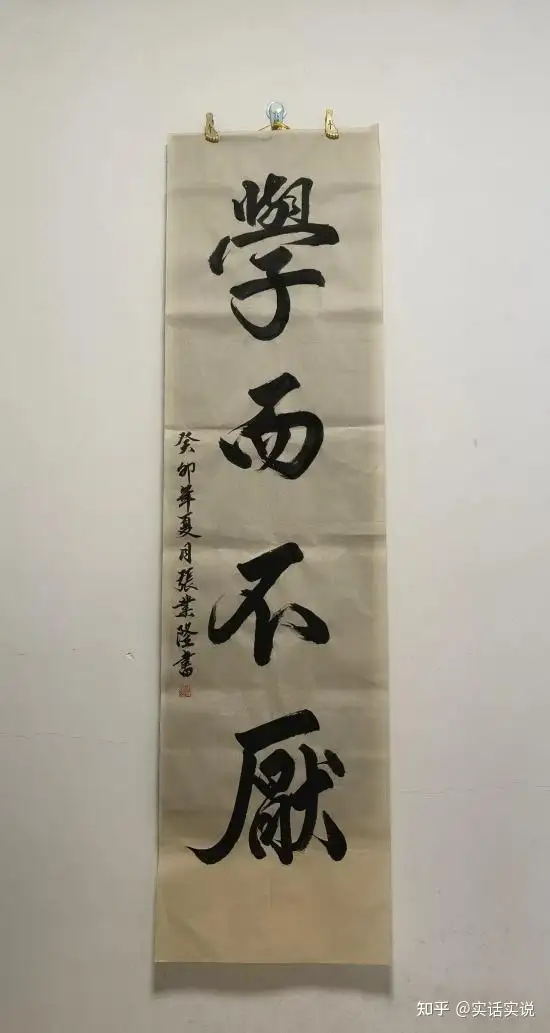 學而不厭
癸卯年夏月張業隆書
知乎 @实话实说